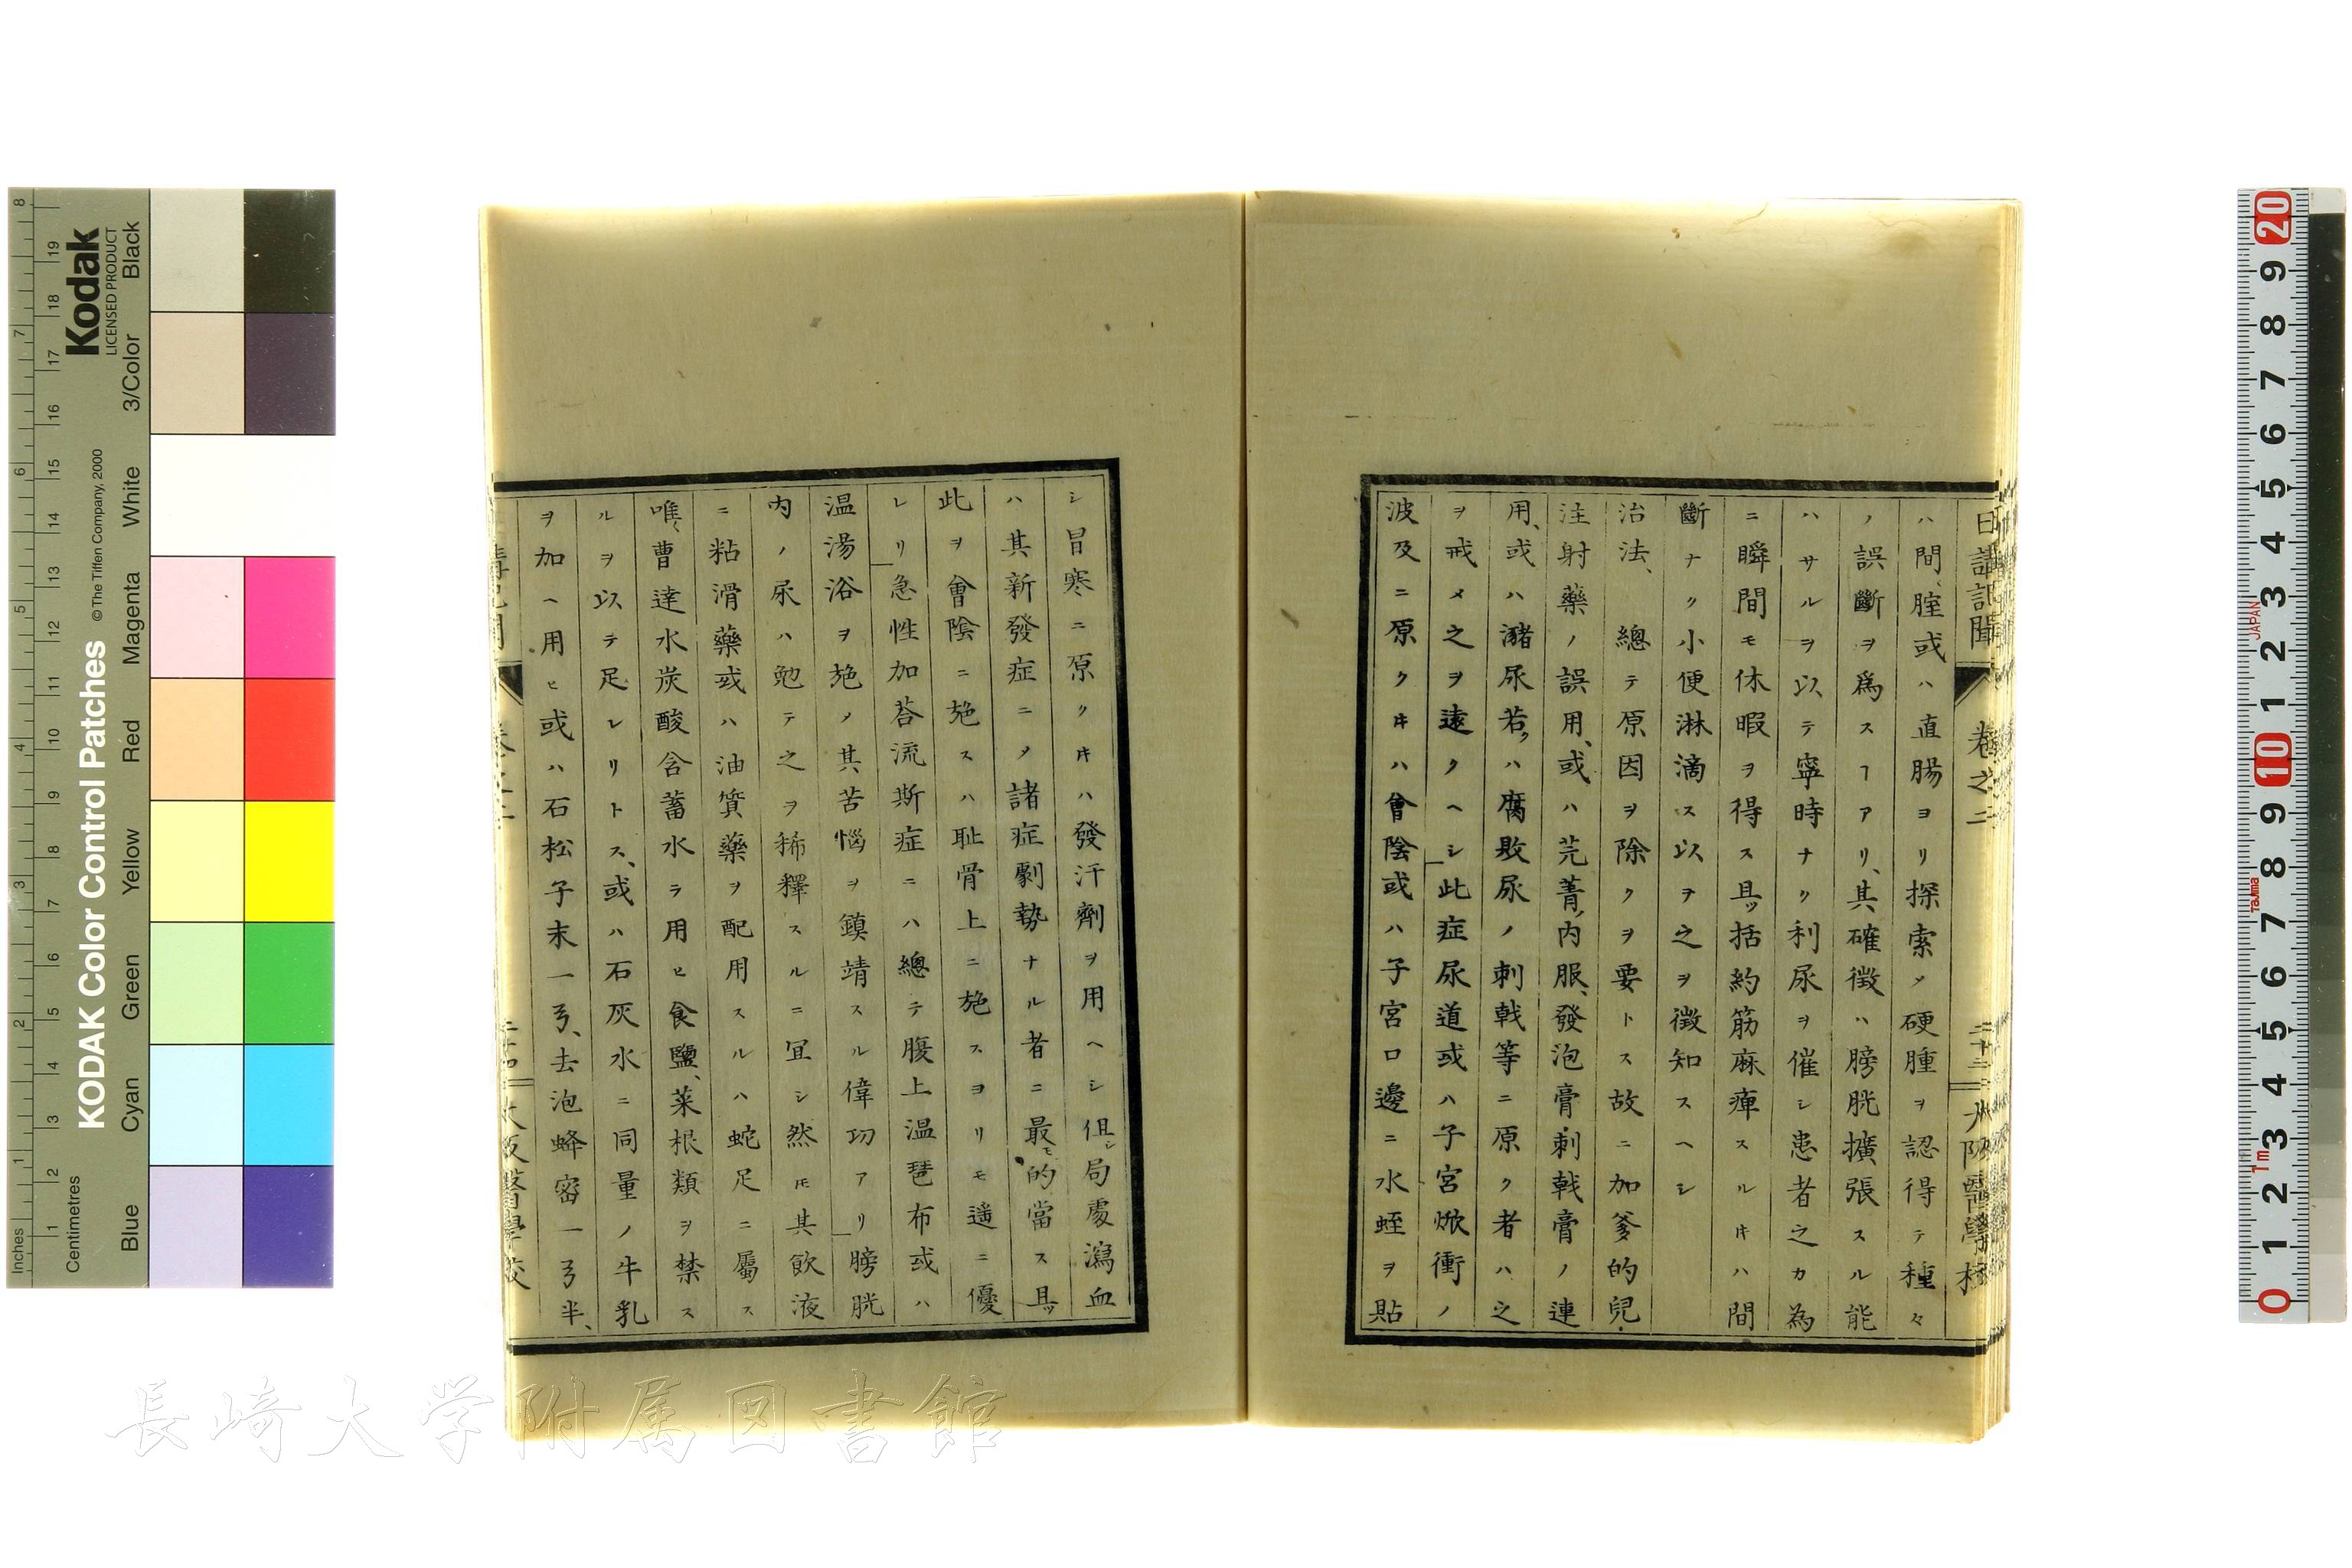 日講記聞 卷之二 二十三 大阪醫學校
ハ間、腟或ハ直腸ヨリ探索メ硬腫ヲ認得テ種々
ノ誤斷ヲ爲スヿアリ、其確徴ハ膀胱擴張スル能
ハサルヲ以テ寧時ナク利尿ヲ催シ患者之カ為
ニ瞬間モ休暇ヲ得ス且ツ括約筋麻痺スルキハ間
斷ナク小便淋滴ス以ヲ之ヲ徴知スヘシ
治法、總テ原因ヲ除クヲ要トス故ニ加爹的兒、
注射藥ノ誤用、或ハ芫菁内服、發泡膏刺戟膏ノ連
用、或ハ瀦尿若クハ腐敗尿ノ刺戟等ニ原ク者ハ之
ヲ戒メ之ヲ遠クヘシ此症尿道或ハ子宮焮衝ノ
波及ニ原クキハ會陰或ハ子宮口邊ニ水蛭ヲ貼
シ冒寒ニ原クキハ發汗劑ヲ用ヘシ但シ局處瀉血
ハ其新發症ニメ諸症劇勢ナル者ニ最モ的當ス且ツ
此ヲ會陰ニ施スハ耻骨上ニ施スヨリモ遥ニ優
レリ急性加荅流斯症ニハ總テ腹上温琶布或ハ
温湯浴ヲ施メ其苦惱ヲ鎮靖スル偉功アリ膀胱
内ノ尿ハ勉テ之ヲ稀釋スルニ冝シ然𪜈其飲液
ニ粘滑藥或ハ油質藥ヲ配用スルハ蛇足ニ屬ス
唯〻曹達水炭酸含蓄水ヲ用ヒ食鹽、菜根類ヲ禁ス
ルヲ以テ足レリトス、或ハ石灰水ニ同量ノ牛乳
ヲ加ヘ用ヒ或ハ石松子末一弓、去泡蜂密一弓半、
講記聞 卷之二 二十四 大阪醫學校
KODAK Color Control Patches
©The Tiffen Company, 2000
Kodak
LICENSED PRODUCT
Inches
Centimetres
Blue Cyan Green Yellow Red Magenta White 3/Color Black
JAPAN
TaJima
1m
長崎大学附属図書館